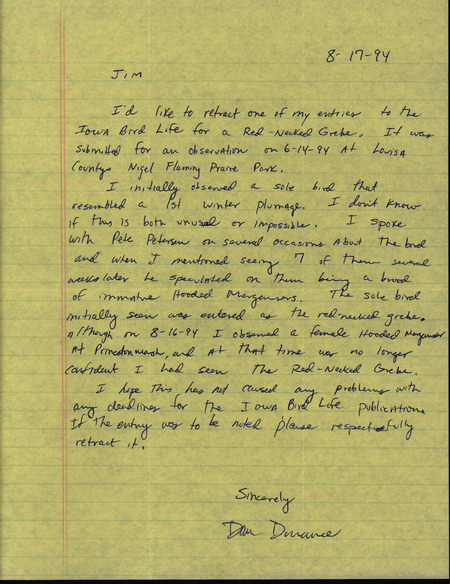 8-17-94
Jim
I'd like to retract one of my entries to the
Iowa Bird Life for a Red-Necked Grebe. It was
submitted for an observation on 6-14-94 at Louisa
Countys Nigel Flaming Praire Park.
I initially observed a sole bird that
resembled a 1st winter plumage. I don't know
if this is both unusual or impossible. I spoke
with Pete Petersen on several occasions about the bird
and when I mentioned seeing 7 of them several
weeks later he speculated on them being a brood
of immative Hooded Mergansers. The sole bird
initially seen was entered as the red-necked grebe.
Although on 8-16-94 I observed a female Hooded Merganser
at Princeton marsh, and at that time was no longer
confident I had seen the Red-Necked Grebe.
I hope this has not caused any problems with
any deadlines for the Iowa Bird Life publications
If the entry was to be noted please respectfully
retract it.
Sincerely